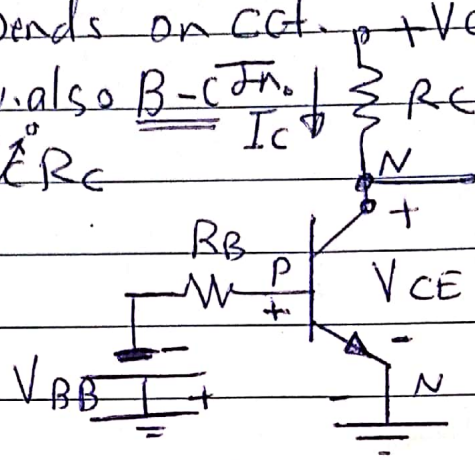 ends on CCt. +VC
.also B-C Jn. Ic RC
RC N
+
RB
P VCE
+
-
-
VBB + - N